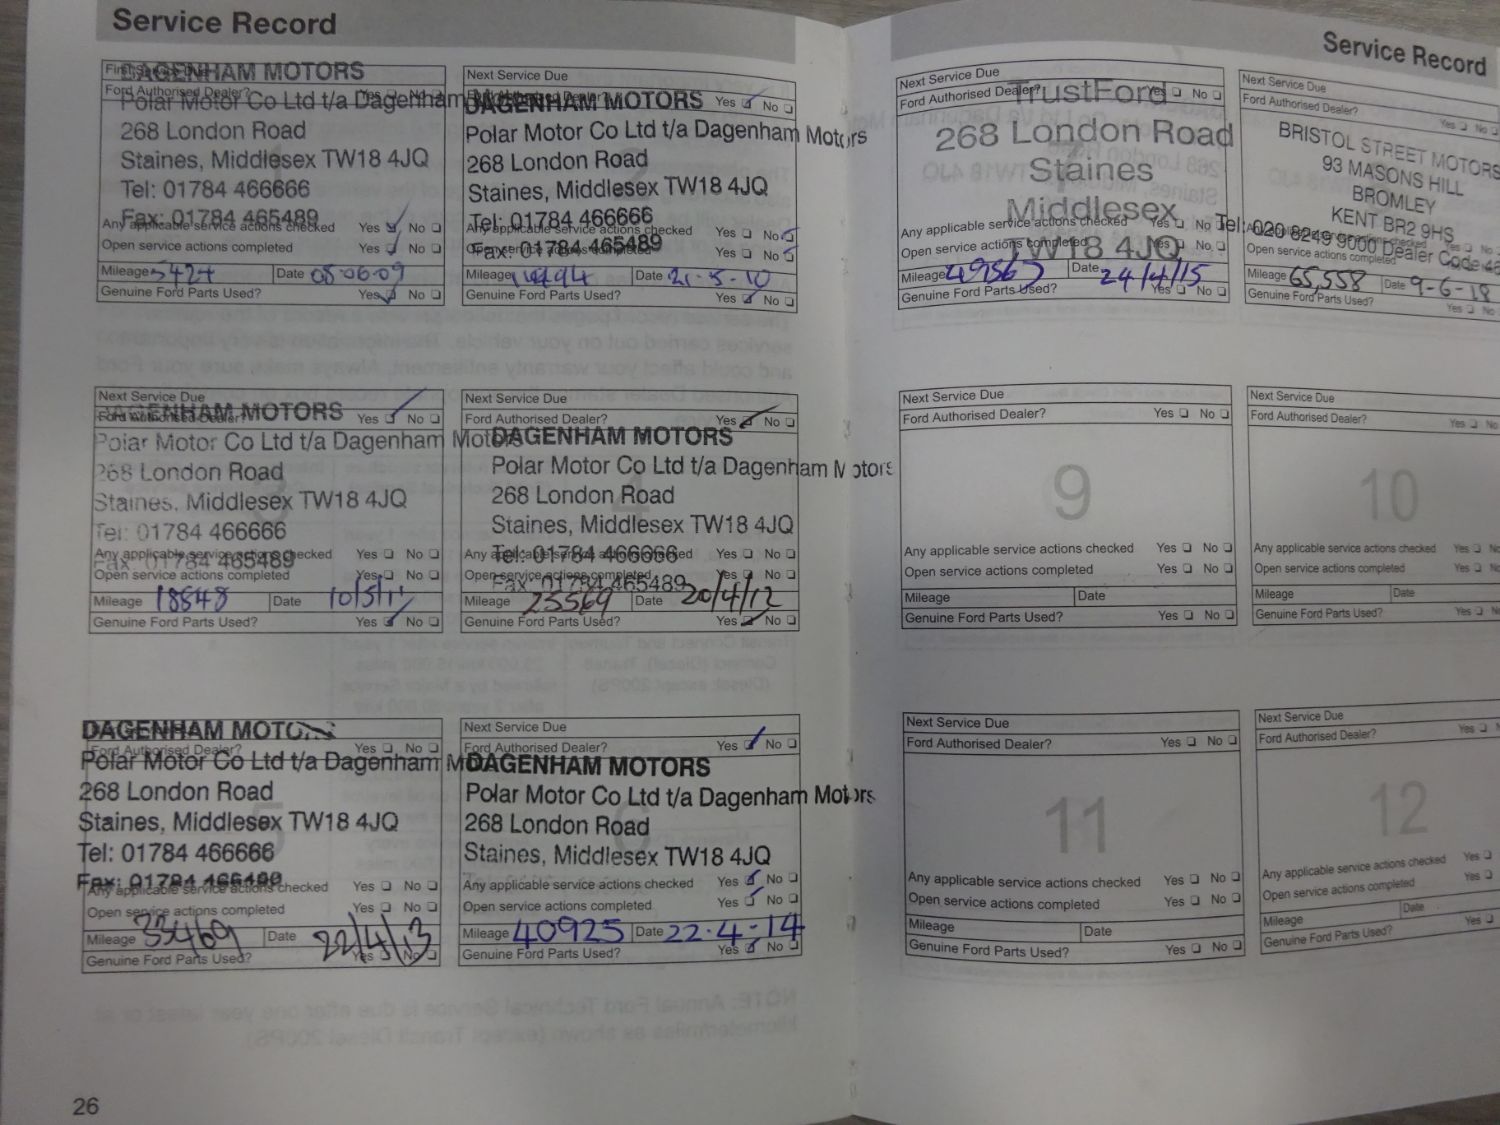 Service Record
First Service Due
DAGENHAM MOTORS
Ford Authorised Dealer? Yes No
Polar Motor Co Ltd t/a Dagenham
268 London Road
Staines, Middlesex TW18 4JQ
Tel: 01784 466666
Fax: 01784 465489
Any applicable service actions checked Yes No
Open service actions completed Yes No
Mileage 5424 Date 08-06-09
Genuine Ford Parts Used? Yes No
Next Service Due
Ford Authorised Dealer? Yes No
DAGENHAM MOTORS
Polar Motor Co Ltd t/a Dagenham Motors
268 London Road
Staines, Middlesex TW18 4JQ
Tel: 01784 466666
Any applicable service actions checked Yes No
Fax: 01784 465489
Open service actions completed Yes No
Mileage 14494 Date 21-5-10
Genuine Ford Parts Used? Yes No
Next Service Due
DAGENHAM MOTORS
Ford Authorised Dealer? Yes No
Polar Motor Co Ltd t/a Dagenham Motors
268 London Road
Staines, Middlesex TW18 4JQ
Tel: 01784 466666
Any applicable service actions checked Yes No
Fax: 01784 465489
Open service actions completed Yes No
Mileage 18848 Date 10/5/11
Genuine Ford Parts Used? Yes No
Next Service Due
Ford Authorised Dealer? Yes No
DAGENHAM MOTORS
Polar Motor Co Ltd t/a Dagenham Motors
268 London Road
4
Staines, Middlesex TW18 4JQ
Tel: 01784 466666
Any applicable service actions checked Yes No
Open service actions completed Yes No
Fax: 01784 465489
Mileage 25569 Date 20/4/12
Genuine Ford Parts Used? Yes No
DAGENHAM MOTORS
Ford Authorised Dealer? Yes No
Polar Motor Co Ltd t/a Dagenham
268 London Road
Staines, Middlesex TW18 4JQ
Tel: 01784 466666
Fax: 01784 465489
Any applicable service actions checked Yes No
Open service actions completed Yes No
Mileage 33469 Date 22/4/13
Genuine Ford Parts Used? Yes No
Next Service Due
Ford Authorised Dealer? Yes No
DAGENHAM MOTORS
Polar Motor Co Ltd t/a Dagenham Motors
268 London Road
6
Staines, Middlesex TW18 4JQ
Any applicable service actions checked Yes No
Open service actions completed Yes No
Mileage 40925 Date 22.4-14
Genuine Ford Parts Used? Yes No
26
Service Record
Next Service Due
Ford Authorised Dealer? Yes No
TrustFord
268 London Road
Staines
Middlesex
Any applicable service actions checked Yes No
Open service actions completed Yes No
TW18 4JQ
Mileage Date 24/4/15
Genuine Ford Parts Used? Yes No
Next Service Due
Ford Authorised Dealer? Yes No
BRISTOL STREET MOTORS
93 MASONS HILL
BROMLEY
KENT BR2 9HS
Tel: 020 8249 9000 Dealer Code
Open service actions completed Yes No
Mileage 65,558 Date 9-6-18
Genuine Ford Parts Used? Yes No
Next Service Due
Ford Authorised Dealer? Yes No
9
Any applicable service actions checked Yes No
Open service actions completed Yes No
Mileage Date
Genuine Ford Parts Used? Yes No
Next Service Due
Ford Authorised Dealer? Yes No
10
Any applicable service actions checked Yes No
Open service actions completed Yes No
Mileage Date
Genuine Ford Parts Used? Yes No
Next Service Due
Ford Authorised Dealer? Yes No
11
Any applicable service actions checked Yes No
Open service actions completed Yes No
Mileage Date
Genuine Ford Parts Used? Yes No
Next Service Due
Ford Authorised Dealer? Yes
12
Any applicable service actions checked Yes
Open service actions completed Yes
Mileage Date
Genuine Ford Parts Used? Yes